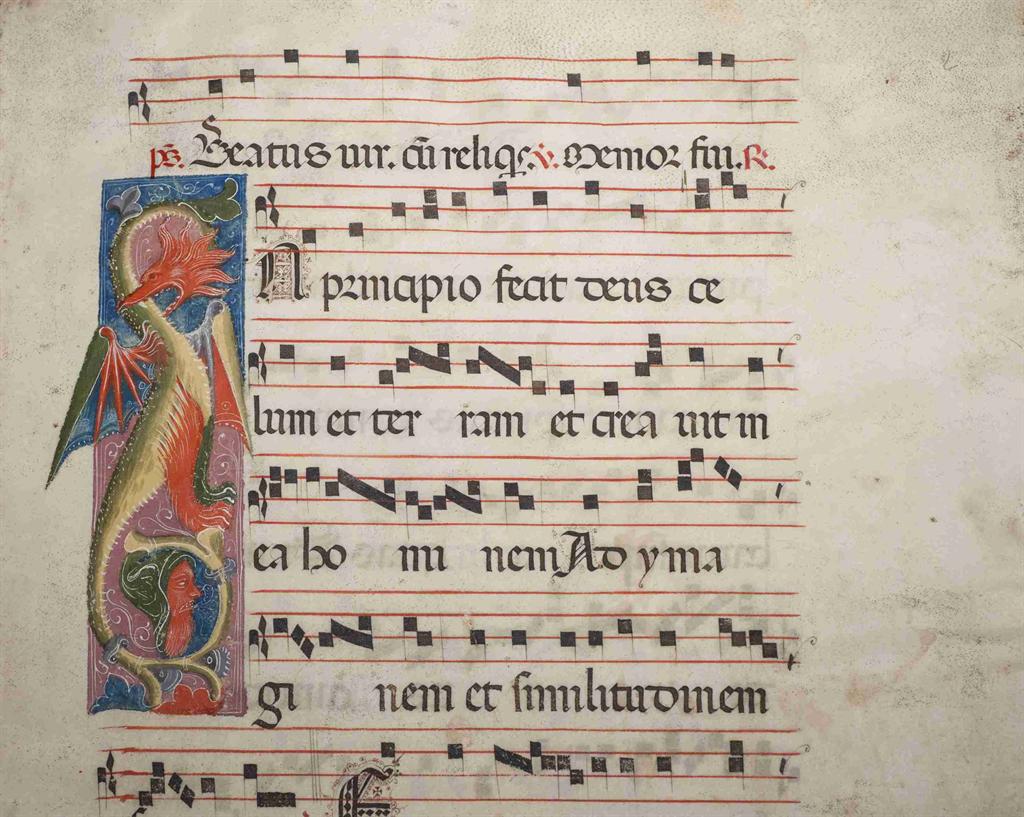 ps. Beatus uir. cū reliqs. v. Memor fui. R.
IN principio fecit deus ce
lum et ter ram et crea uit in
ea ho mi nem Ad yma
gi nem et similitudinem